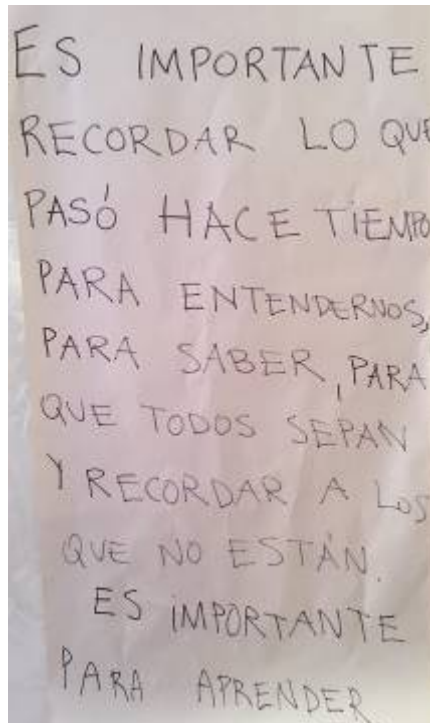 ES IMPORTANTE
RECORDAR LO QUE
PASÓ HACE TIEMPO
PARA ENTENDERNOS,
PARA SABER, PARA
QUE TODOS SEPAN
Y RECORDAR A LOS
QUE NO ESTÁN.
ES IMPORTANTE
PARA APRENDER